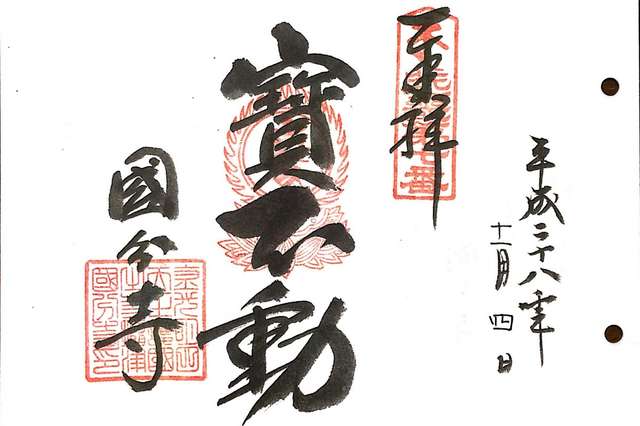 平成二十八年
十一月四日
奉拝
寶不動
國分寺